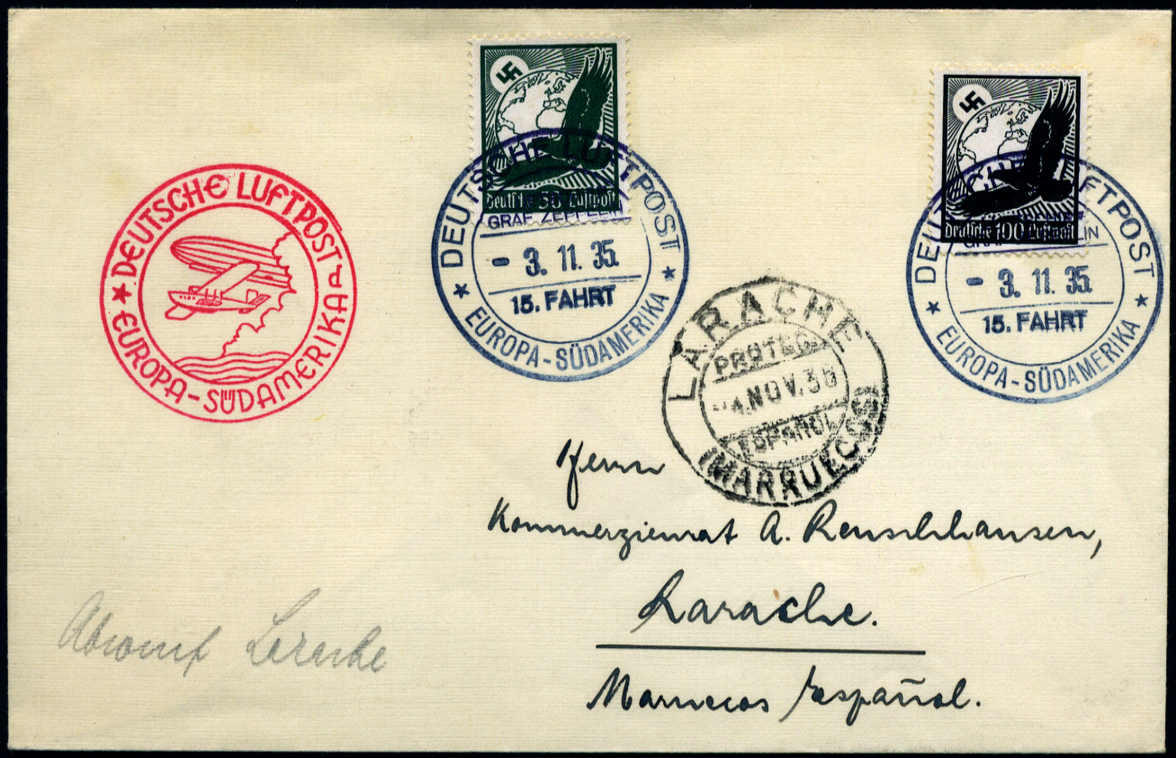 Deutsche 50 Luftpost
Deutsche 100 Luftpost
DEUTSCHE LUFTPOST
EUROPA-SÜDAMERIKA
DEUTSCHE LUFTPOST
GRAF ZEPPELIN
- 3.11.35.
15. FAHRT
EUROPA-SÜDAMERIKA
DEUTSCHE LUFTPOST
GRAF ZEPPELIN
- 3.11.35.
15. FAHRT
EUROPA-SÜDAMERIKA
LARACHE
PROTEC.
-4.NOV.35
ESPAÑOL
(MARRUECOS)
Herrn
Kommerzienrat A. Renschhausen,
Larache.
Marruecos Español.
Abwurf Larache